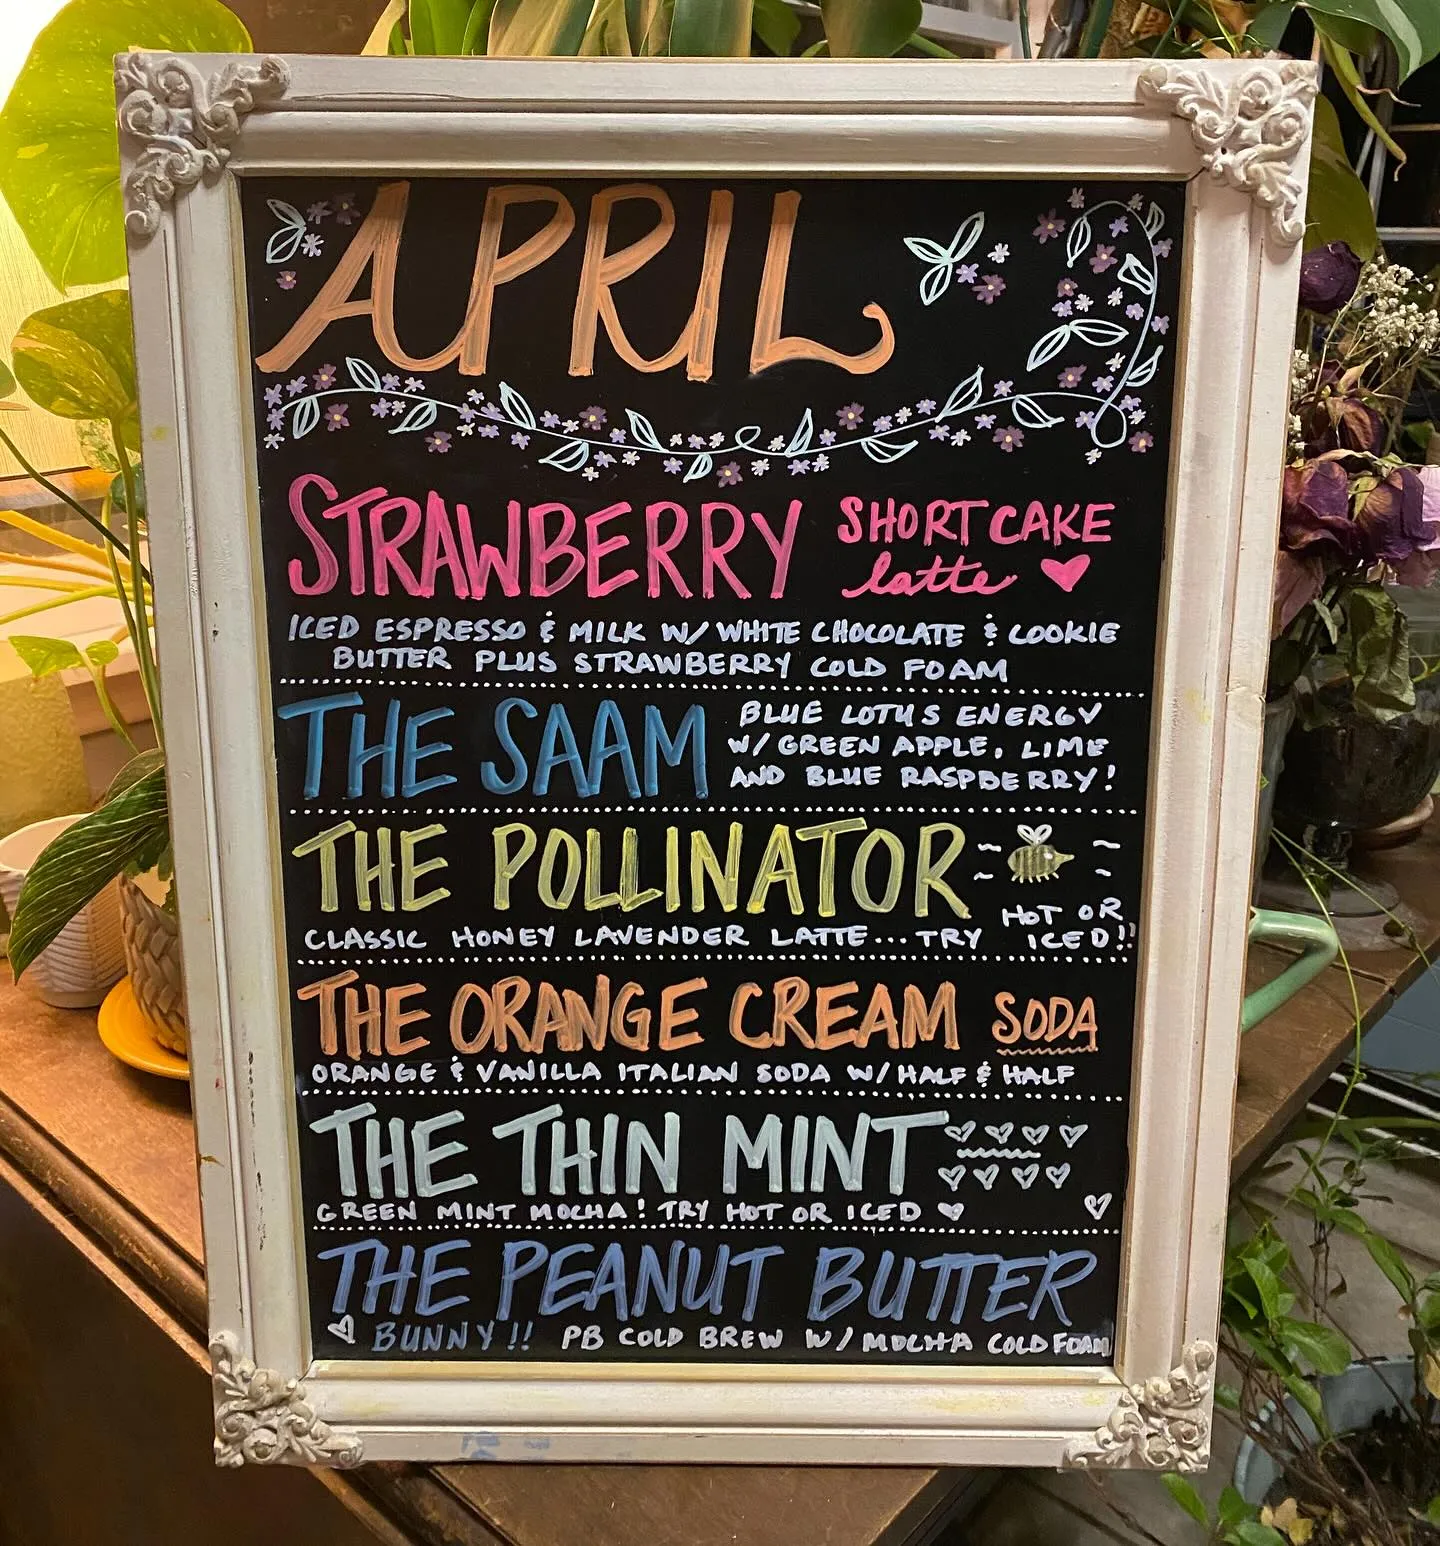 APRIL
STRAWBERRY SHORTCAKE
latte
ICED ESPRESSO & MILK W/ WHITE CHOCOLATE & COOKIE
BUTTER PLUS STRAWBERRY COLD FOAM
THE SAAM
BLUE LOTUS ENERGY
W/ GREEN APPLE, LIME
AND BLUE RASPBERRY!
THE POLLINATOR
CLASSIC HONEY LAVENDER LATTE... TRY HOT OR
ICED!!
THE ORANGE CREAM SODA
ORANGE & VANILLA ITALIAN SODA W/ HALF & HALF
THE THIN MINT
GREEN MINT MOCHA! TRY HOT OR ICED
THE PEANUT BUTTER
BUNNY!! PB COLD BREW W/ MOCHA COLD FOAM